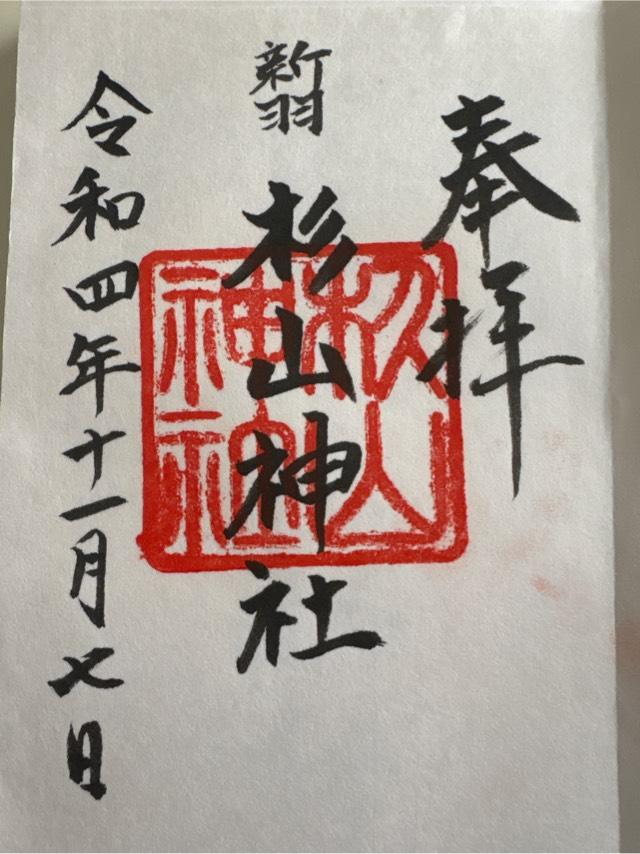 奉拝
新羽
杉山神社
杉山
神社
令和四年十一月七日